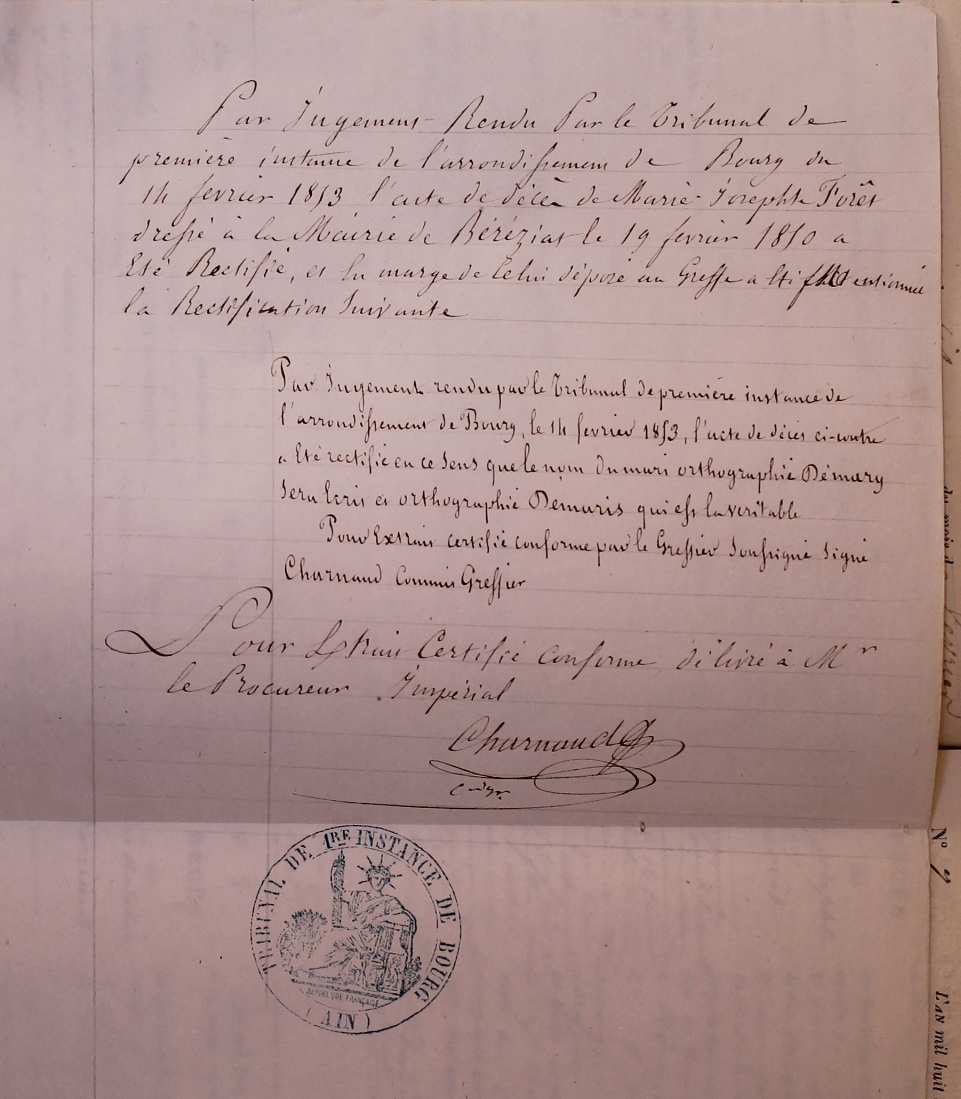 Par Jugement Rendu Par le Tribunal de
première instance de l'arrondissement de Bourg du
14 fevrier 1853 l'acte de décès de Marie Josephte Forêt
dressé à la Mairie de Béréziat le 19 fevrier 1850 a
Eté Rectifié, et En marge de Celui déposé au Greffe a été mentionnée
la Rectification Suivante
Par Jugement rendu par le Tribunal de première instance de
l'arrondissement de Bourg, le 14 fevrier 1853, l'acte de décès ci-contre
a Eté rectifié en ce Sens que le nom du mari orthographié Démary
Sera Ecrit et orthographié Demaris qui est la veritable
Pour Extrait certifié conforme par le Greffier Soussigné Signé
Charnaud Commis Greffier
Pour Extrait Certifié conforme délivré à Mr
le Procureur Impérial
Charnaud
TRIBUNAL DE 1RE INSTANCE DE BOURG
RÉPUBLIQUE FRANÇAISE
(AIN)
du mois de fevrier
N° 9
L'an mil huit